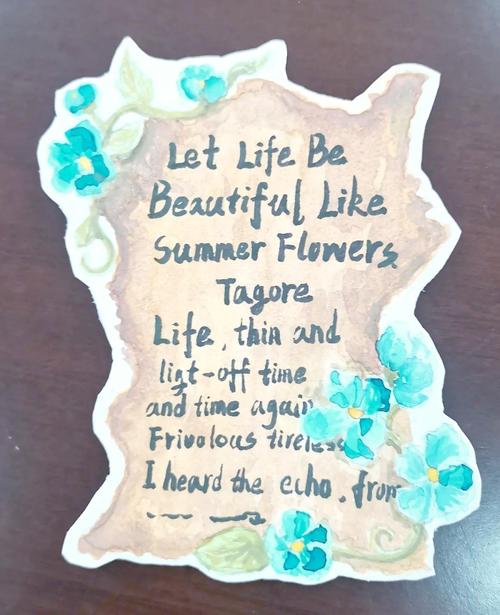 Let Life Be
Beautiful Like
Summer Flowers
Tagore
Life, thin and
ligt-off time
and time again
Frivolous tireless
I heard the echo. from